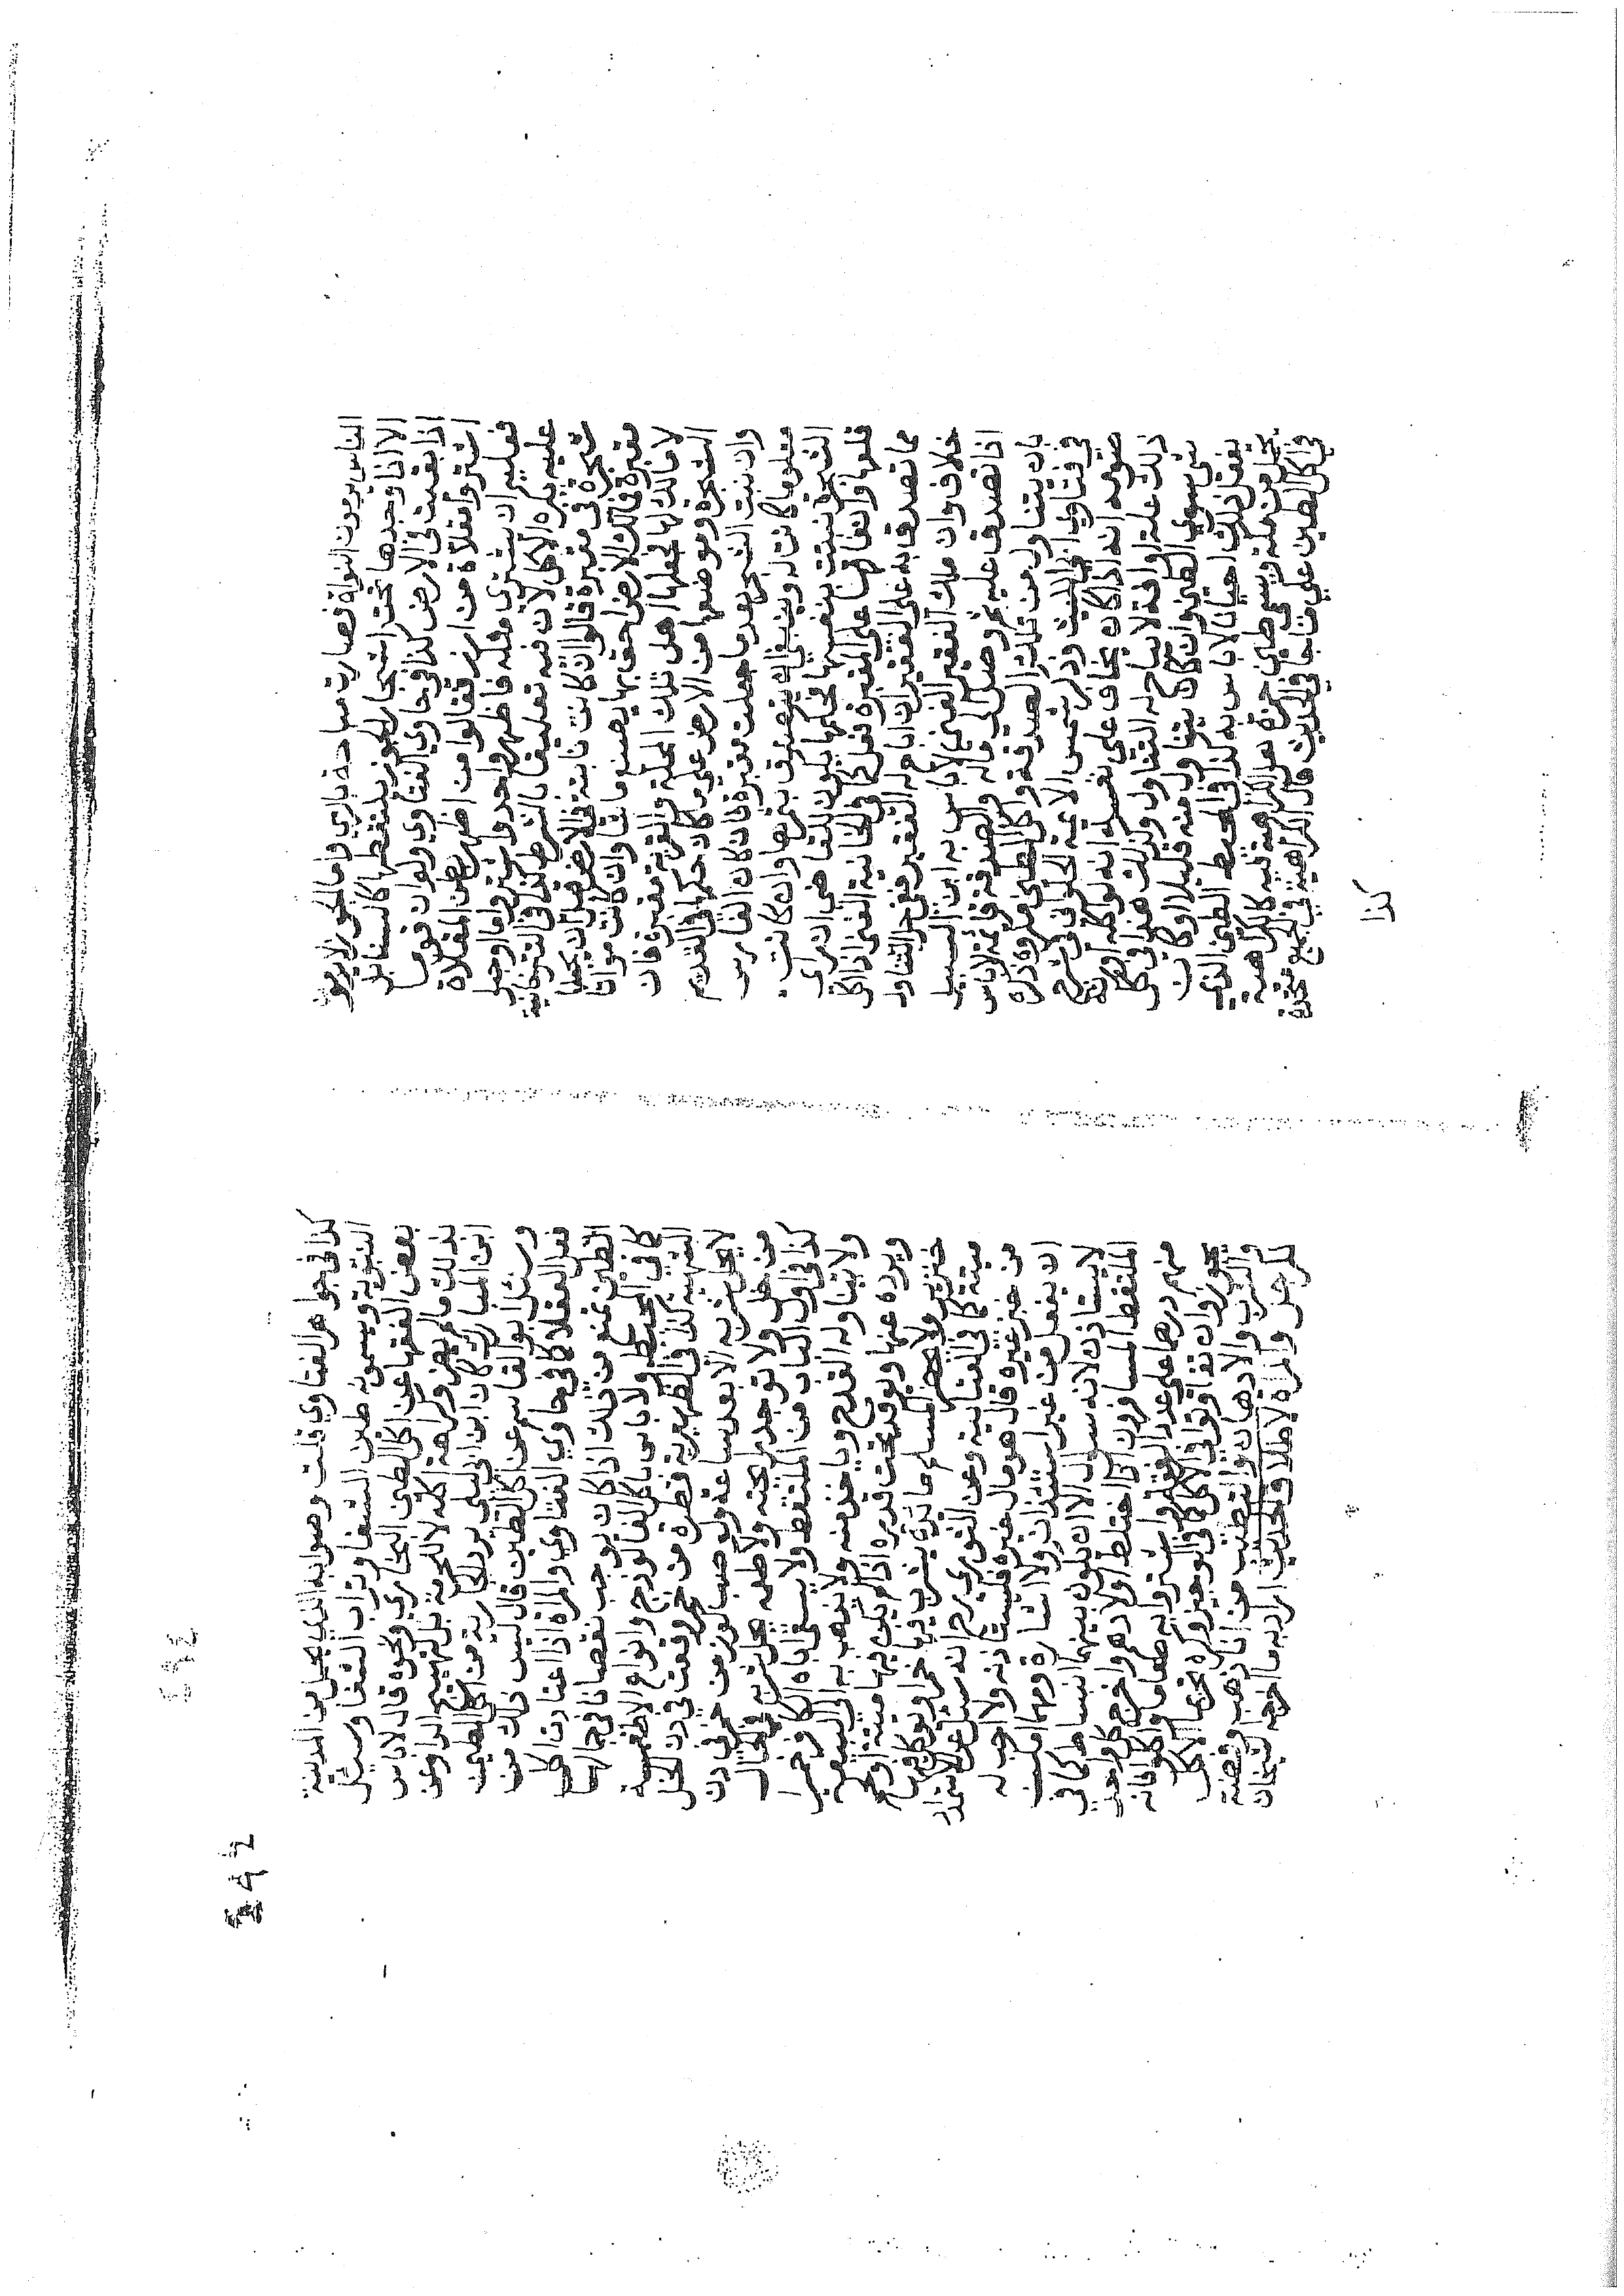 الناس يرمون النواة فصارت مباحة بالرمي واما الجوز لا يرمونه
الا اذا وجدها تحت اشجار الجوز يلتقطها كالسنابل
اذا بقيت في الارض كذا في حاوي الفتاوي ولو ان قوما
اشتروا مقلاة من ارز فقالوا من اظهر بطن المقلاة
فعليه ان يشتري مثله فاظهر واحد واشتري ما اوجب
عليه يكره الاكل لان فيه تعليقا بالشرط كذا في
شجرة في مقبرة قالوا ان كانت نابتة في الارض قبل ان يجعلها
مقبرة فمالك الارض احق بها يصنع ما شاء وان كانت مواتا
لا مالك لها فجعلها اهل تلك المحلة والقرية مقبرة فان
الشجرة وموضعها من الارض على ما كان حكمها في القديم
وان نبت الشجر بعد ما جعلت مقبرة فان كان الغارس
معلوما كانت له وينبغي ان يتصدق بثمرها وان كانت
الشجرة نبتت بنفسها فحكمها يكون للقاضي ان راى
قلعها وانفاقها على المقبرة فعل كما في الخانية الغني اذا اكل
مما تصدق به على الفقير ان اباح له الفقير ففي حل التناول
خلاف وان ملك الفقير الغني لا باس به ابن السبيل
اذا تصدق عليه ثم وصل الى ماله والصدقة قائمة لا باس
بان يتناول من تلك الصدقة واكل الطين مكروه ذكره
في فتاوي ابي الليث وذكر شمس الائمة الحلواني في شرح
صومه انه اذا كان يخاف على نفسه انه لو اكله اورثه
ذلك علة او افة لا يباح له التناول وكذلك هذا في كل
شي سوي الطين وان كان يتناول منه قليلا او كان
يفعل ذلك احيانا لا باس به كذا في المحيط الطين الذي
يحمل من مكة ويسمى طين حمزة هل الكراهية فيه كالكراهية
في اكل الطين على ما جا في الحديث قال الكراهية في الجميع متحدة
كذا
كذا في جواهر الفتاوي قلت وصوابه الذي يحمل من المدينة
النبوية ويسمونه طين الشفا وتراب الشفا وسئل
بعض الفقها عن اكل الطين البخاري ونحوه قال لا باس
بذلك ما لم يضر وكراهة اكله لا للحرمة بل لتهييج الدا وعن
ابن المبارك كان ابن ابي ليلى يرد الجارية من اكل الطين
وسئل ابو القاسم عن اكل الطين قال ليس ذلك من
فعل العقلا كما في حاوي الفتاوي والمراة اذا اعتادت اكل
الطين تمنع من ذلك اذا كان يوجب نقصانا في جمالها
كما في المحيط ولا باس باكل الفالوذج وانواع الاطعمة
الشهية كذا في الظهيرية قطرة من خمر وقعت في دن الخل
لا يحل شربه الا بعد ساعة ولو صب كوز من خمر في دن
من خل ولا توجد رائحته ولا طعمه حل شربه في الحال
كذا في اول الباب من الملتقط ولا يسقي اباه الكافر خمرا
ولا يناوله القدح وياخذ منه ولا يذهب به الى البيعة
ويرده عنها ويوقد تحت قدره اذا لم يكن بها ميتة او لحم
خنزير ولا يحضر المسلم مائدة يشرب فيها خمر او يوكل فيها
ميتة كما في العتابية وعن الثوري رح انه سئل عن
من خبز غيره قال هو مال غيره فليستاذنه ولا احب له
ان يفعل من غير استيذان ولا اشارة ومهما امكنه
لا يستاذن لانه سوال الا ان يكون بينهما انبساط كما في
الملتقط المسافرون اذا اختلط ازوادهم واخرج كل واحد
منهم درهما على عدد الرفقة واشتروا به طعاما واكلوا فانه
يجوز وان تفاوتوا في الاكل كما في الوجيز وكره تحريما الاكل
والشرب والادهان والتطيب من انا ذهب وفضة
للرجل والمراة لاطلاق الحديث اراد به ما اخرجه الشيخان